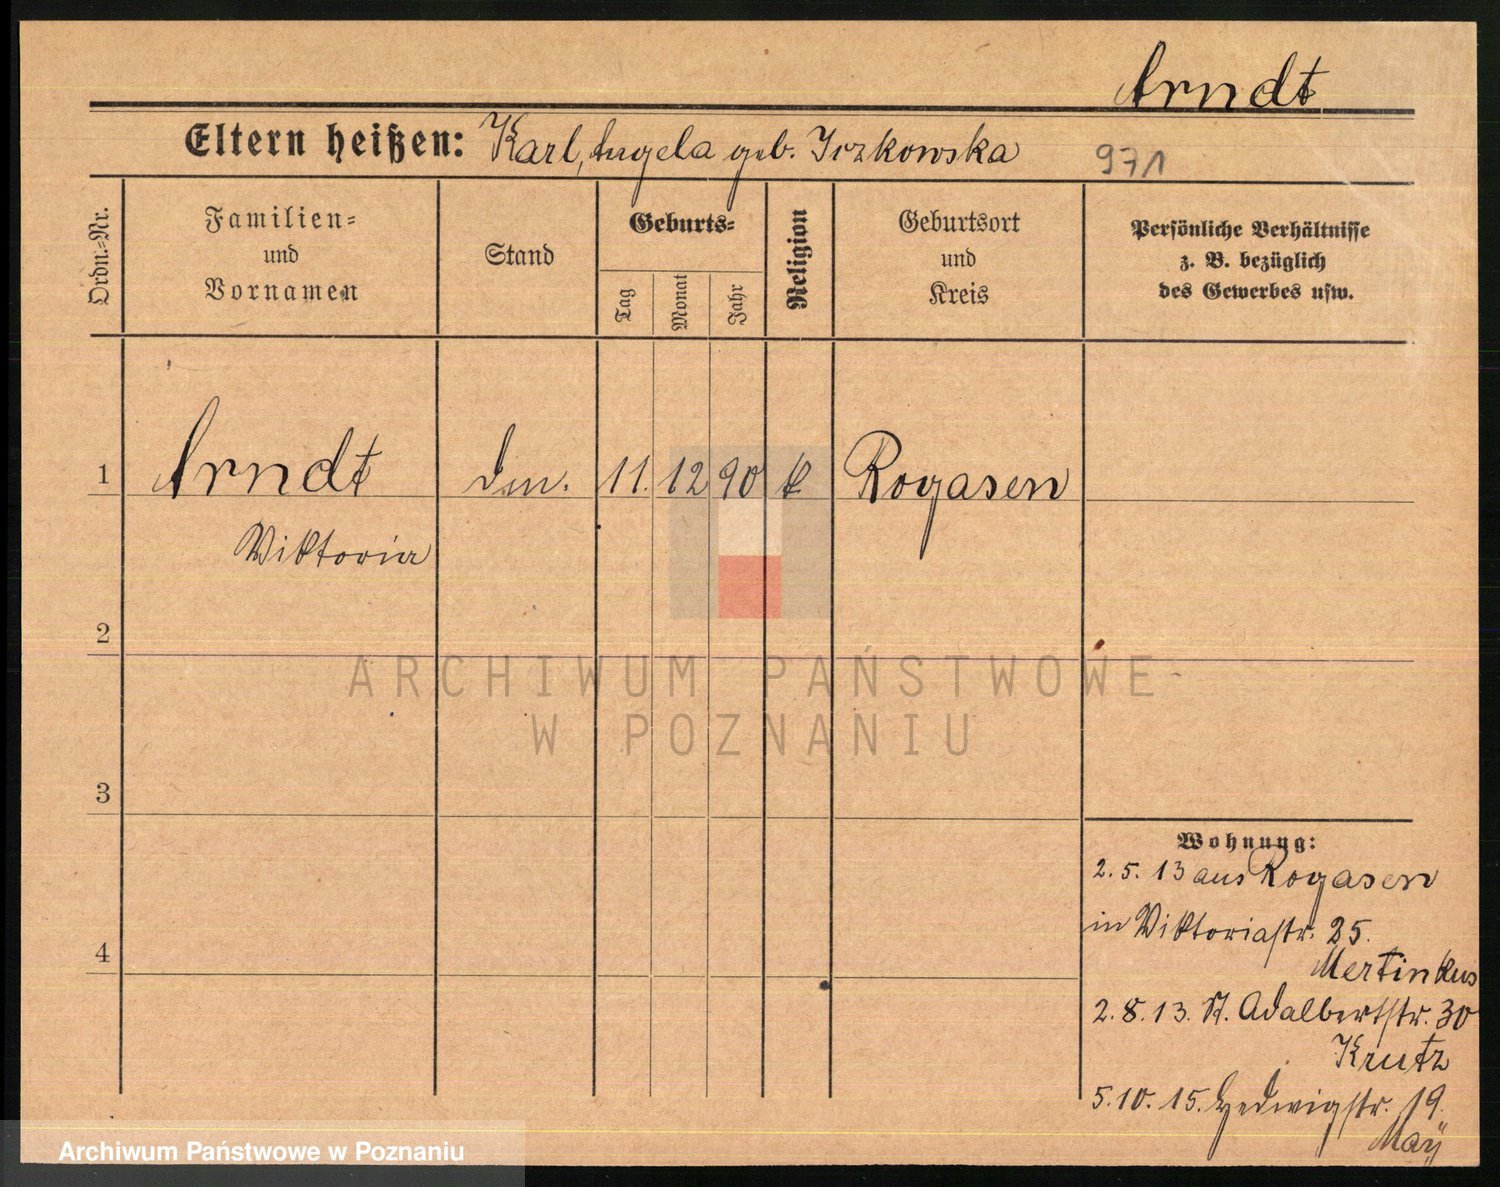 Arndt
Eltern heißen: Karl, Angela geb. Iczkowska
971
Ordn.-Nr.
Familien- und Vornamen
Stand
Geburts-
Tag
Monat
Jahr
Religion
Geburtsort und Kreis
Persönliche Verhältnisse
z. B. bezüglich
des Gewerbes usw.
1 Arndt 11. 12 90 k Rogasen
Viktoria
2
ARCHIWUM PAŃSTWOWE
W POZNANIU
3
4
Wohnung:
2. 5. 13 aus Rogasen
in Viktoriastr. 25.
Mertinkus
2. 8. 13. St. Adalbertstr. 30
Krutz
5. 10. 15. Hedwigstr. 19.
Maÿ
Archiwum Państwowe w Poznaniu